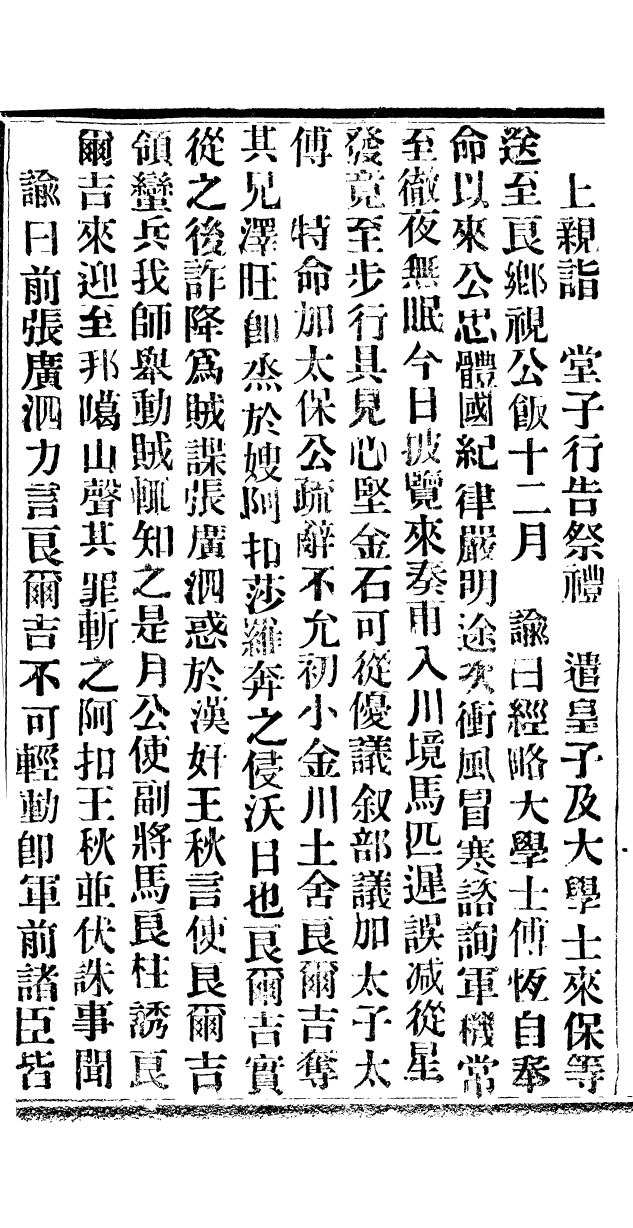 上親詣　堂子行告祭禮　遣皇子及大學士來保等
送至良鄉視公飯十二月　諭曰經略大學士傅恆自奉
命以來公忠體國紀律嚴明途次衝風冒寒諮詢軍機常
至徹夜無眠今日披覽來奏甫入川境馬匹遲誤减從星
發竟至步行具見心堅金石可從優議叙部議加太子太
傅　特命加太保公疏辭不允初小金川土舍良爾吉奪
其兄澤旺卽烝於嫂阿扣莎羅奔之侵沃日也良爾吉實
從之後詐降爲賊諜張廣泗惑於漢奸王秋言使良爾吉
領蠻兵我師舉動賊輒知之是月公使副將馬良柱誘良
爾吉來迎至邦噶山聲其罪斬之阿扣王秋並伏誅事聞
諭曰前張廣泗力言良爾吉不可輕動卽軍前諸臣皆